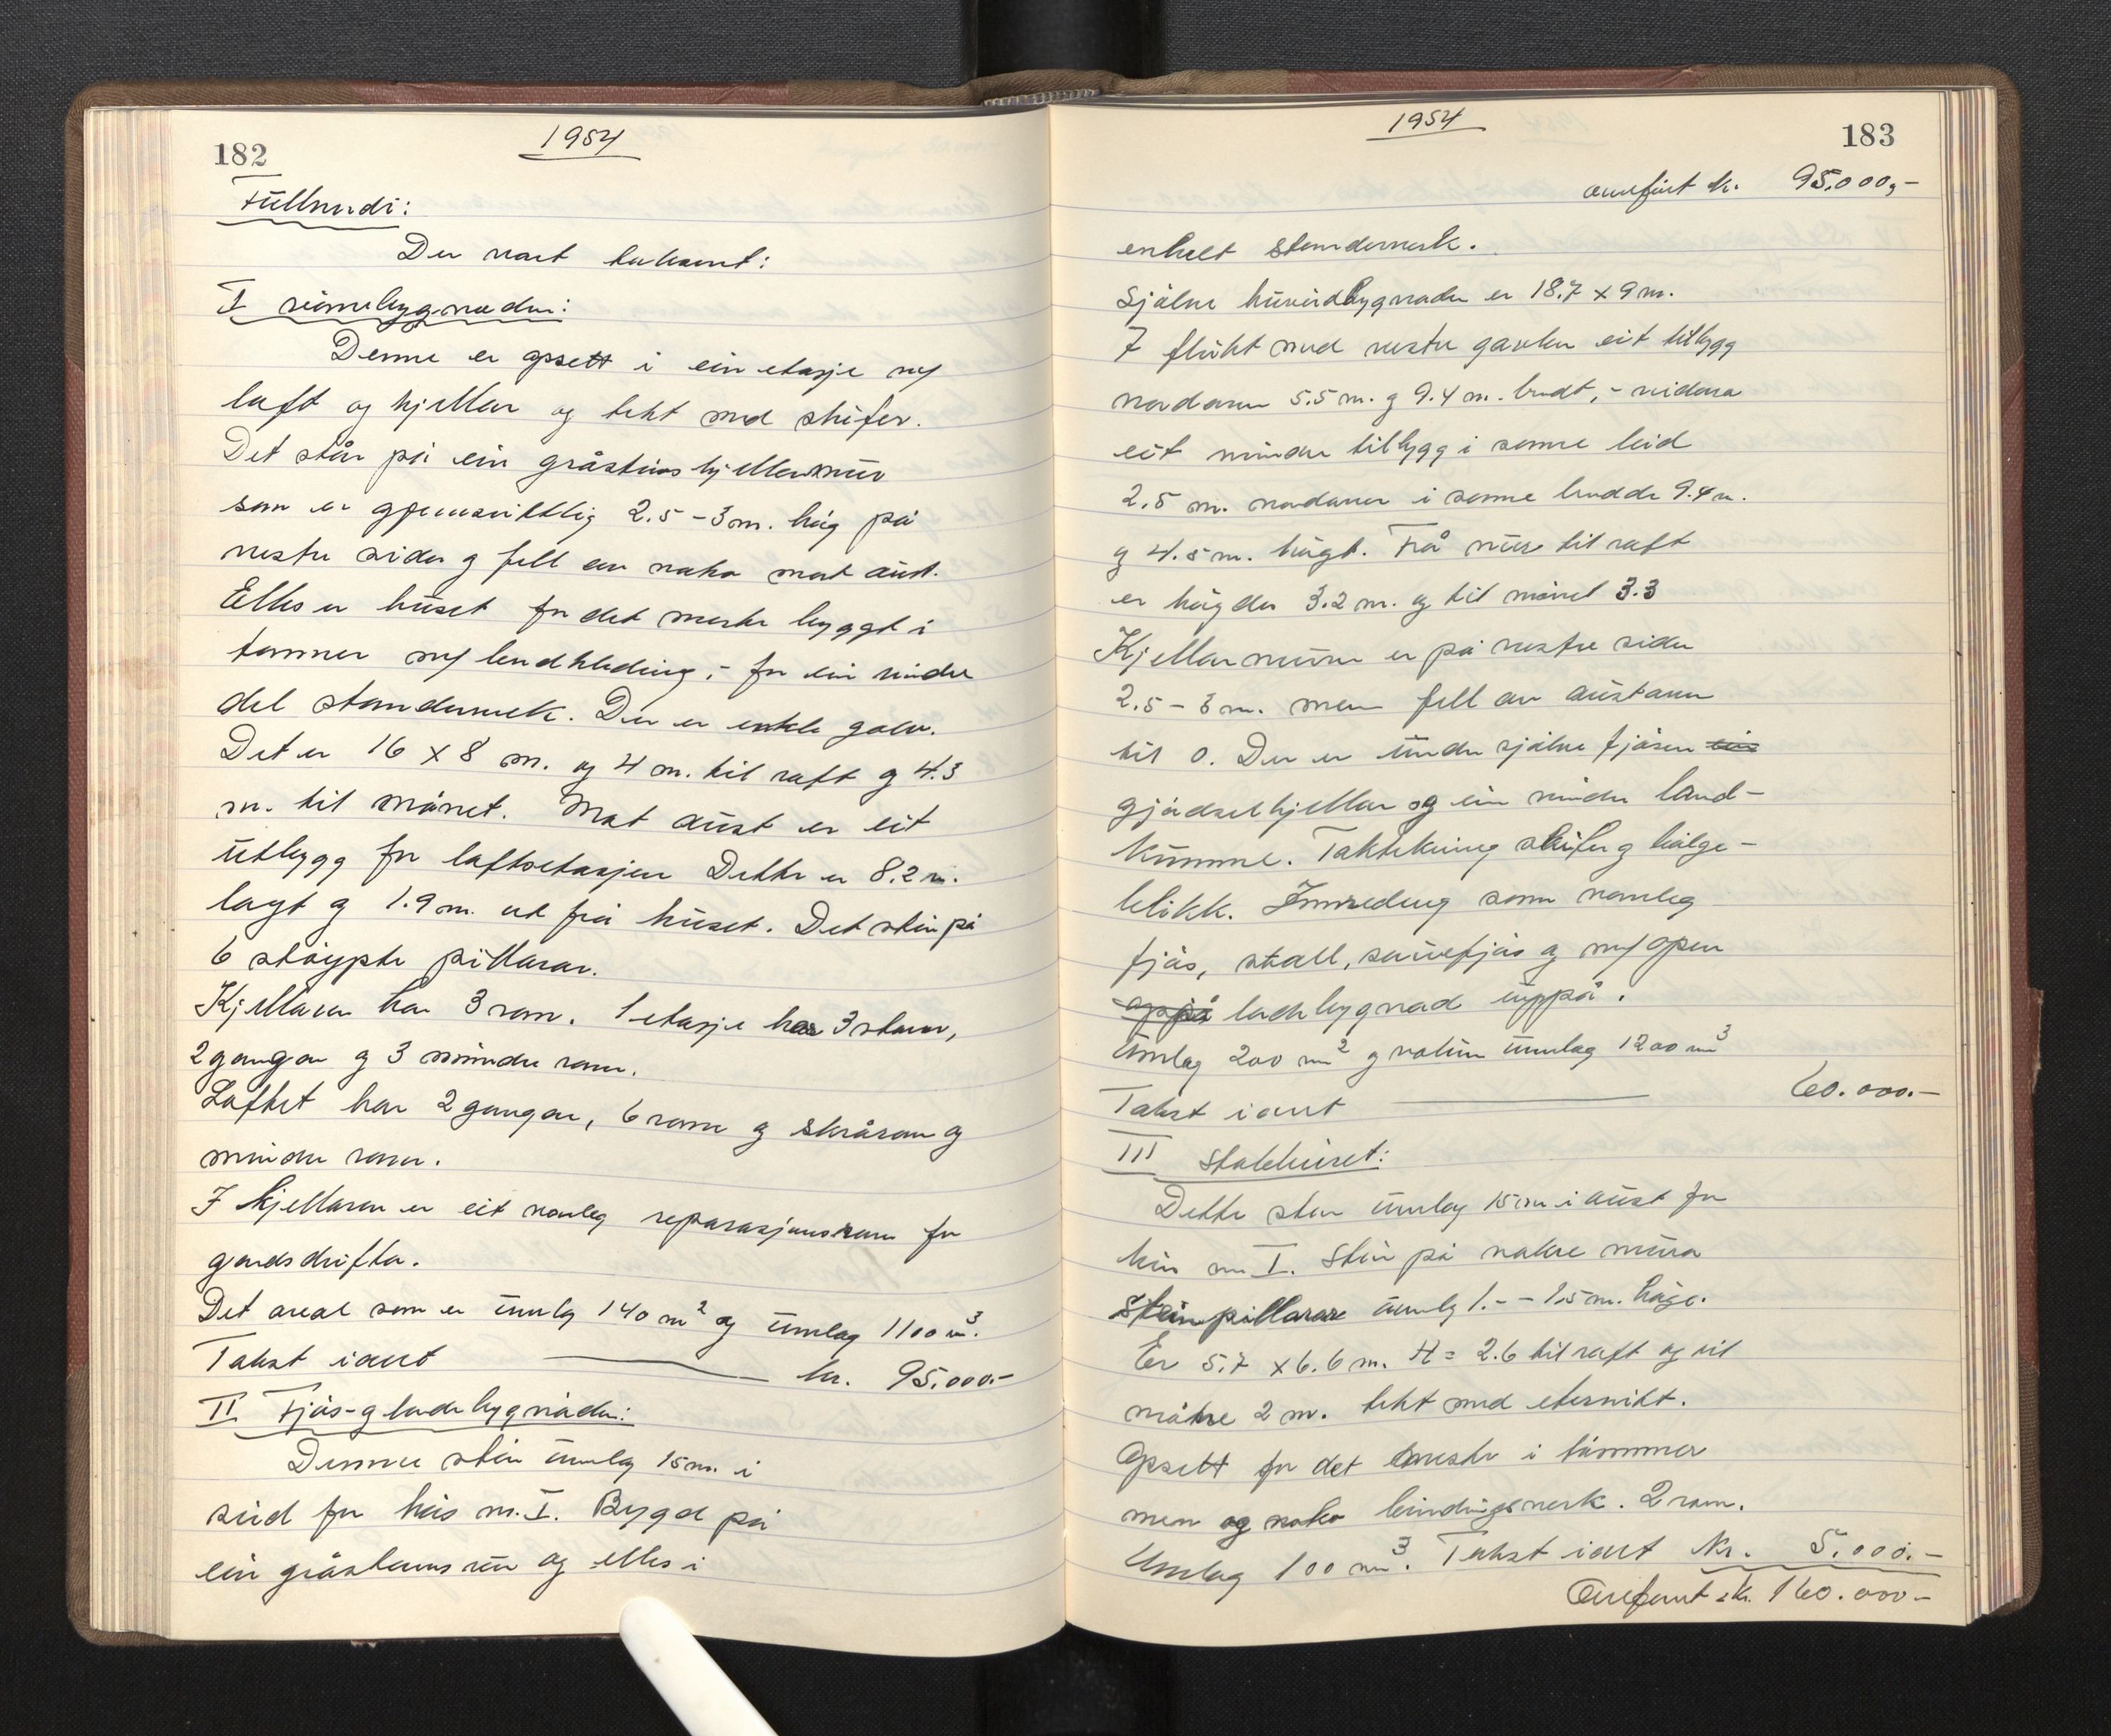 182
1954
Fullverdi:
Der vart taksert:
I våningbygnaden:
Denne er opsett i ein etasje m/
loft og kjellar og tekt med skifer.
Det står på ein gråsteins kjellarmur
som er gjenomsnittlig 2.5 - 3 m. høg på
vestre siden og fell av noko mot aust.
Elles er huset for det meste byggt i
tømmer m/ bordkleding, - for ein mindre
del standerverk. Der er enkle golv.
Det er 16 x 8 m. og 4 m. til raft og 4.3
m. til mønet. Mot aust er eit
utbygg for loftsetasjen Dette er 8.2 m.
langt og 1.9 m. ut frå huset. Det står på
6 støypte pillarar.
Kjellaren har 3 rom. 1 etasje har 3 stover,
2 gangar og 3 mindre rom.
Loftet har 2 gangar, 6 rom og skrårom og
mindre rom.
I kjellaren er eit vanleg reparasjonsrom for
gardsdrifta.
Det areal som er umlag 140 m² og umlag 1100 m³.
Takst i alt — kr. 95.000.-
II Fjøs- og ladebygnaden:
Denne står umlag 15 m. i
sud for hus nr. I. Bygd på
ein gråsteinsmur og elles i
1954
183
overført kr. 95.000,-
enkelt standerverk.
Sjølve hovudbygnaden er 18.7 x 9 m.
I flukt med vestre gavlen eit tilbygg
nordover 5.5 m. og 9.4 m. breidt, - vidare
eit mindre tilbygg i same leid
2.5 m. nordover i same breidde 9.4 m.
og 4.5 m. høgt. Frå mur til raft
er høgden 3.2 m. og til mønet 3.3
Kjellarmuren er på vestre siden
2.5 - 3 m. men fell av austover
til 0. Der er under sjølve fjøsen
gjødselkjellar og ein mindre land-
kumme. Taktekning skifer og bølge-
blikk. Innreding som vanleg
fjøs, stall, sauefjøs og m/ open
oppå ladebygnad uppå.
Umlag 200 m² og volum umlag 1200 m³
Takst i alt — 60.000.-
III Stabburet:
Dette står umlag 15 m i aust for
hus nr. I. Står på nokre mura
steinpillarar umlag 1.- - 1.5 m. høge.
Er 5.7 x 6.6 m. H = 2.6 til raft og til
møne 2 m. tekt med eternitt.
Opsett for det meste i tømmer
men og noko bindingsverk. 2 rom.
Umlag 100 m³. Takst i alt kr. 5.000.-
Overført kr. 160.000-